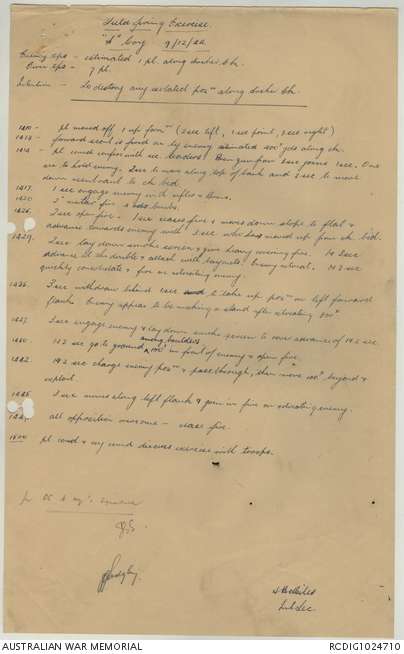 Field Firing Exercise.
"A" Coy 9/12/44
Enemy tps - estimated 1 pl. along creek.
Own tps - 7 pl.
Intention - To destroy any isolated posns along
1410 - pl moved off, 1 up formn (2 sec left, 1 sec point, 3 sec right)
forward scout is fired on by enemy estimated 200x yds along ck.
pl comd confers with sec leaders. Bren gun from 3 sec joins 1 sec. One
sec to hold enemy. 3 sec to move along top of bank and 2 sec to move
down to ck bed.
1417. 1 sec engage enemy with rifles & Brens.
1420 2" mortar fire 2 bombs.
1425. 3 sec open fire - 1 sec ceases fire & moves down slope to flat &
advance towards enemy with 2 sec who moved up from ck bed.
1429. 3 sec lay down smoke screen & give heavy covering fire. 1&2 secs
advance at the double & attack with bayonets. Enemy retreat. 1&2 secs
quickly consolidate & fire on retreating enemy.
1436 3 sec withdraw behind 1 sec to take up posn on left forward
flank. Enemy appear to be making a stand after retreating
1437. 3 sec engage enemy & lay down smoke screen to cover advance of 1&2 sec.
1440. 1&2 sec go to ground among boulders 100x in front of enemy & open fire.
1442. 1&2 sec charge enemy posn & pass through, then move 100x beyond &
exploit.
1445. 3 sec moves along left flank & join in fire on retreating enemy.
all opposition overcome - cease fire.
1500 pl comd & coy comd discuss exercise with troops.
AUSTRALIAN WAR MEMORIAL
RCDIG1024710